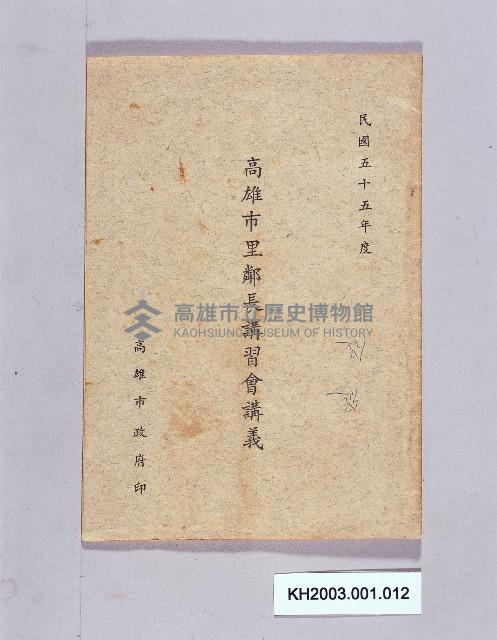 民國五十五年度
高雄市里鄰長講習會講義
高雄市政府印
高雄市立歷史博物館
KAOHSIUNG MUSEUM OF HISTORY
KH2003.001.012